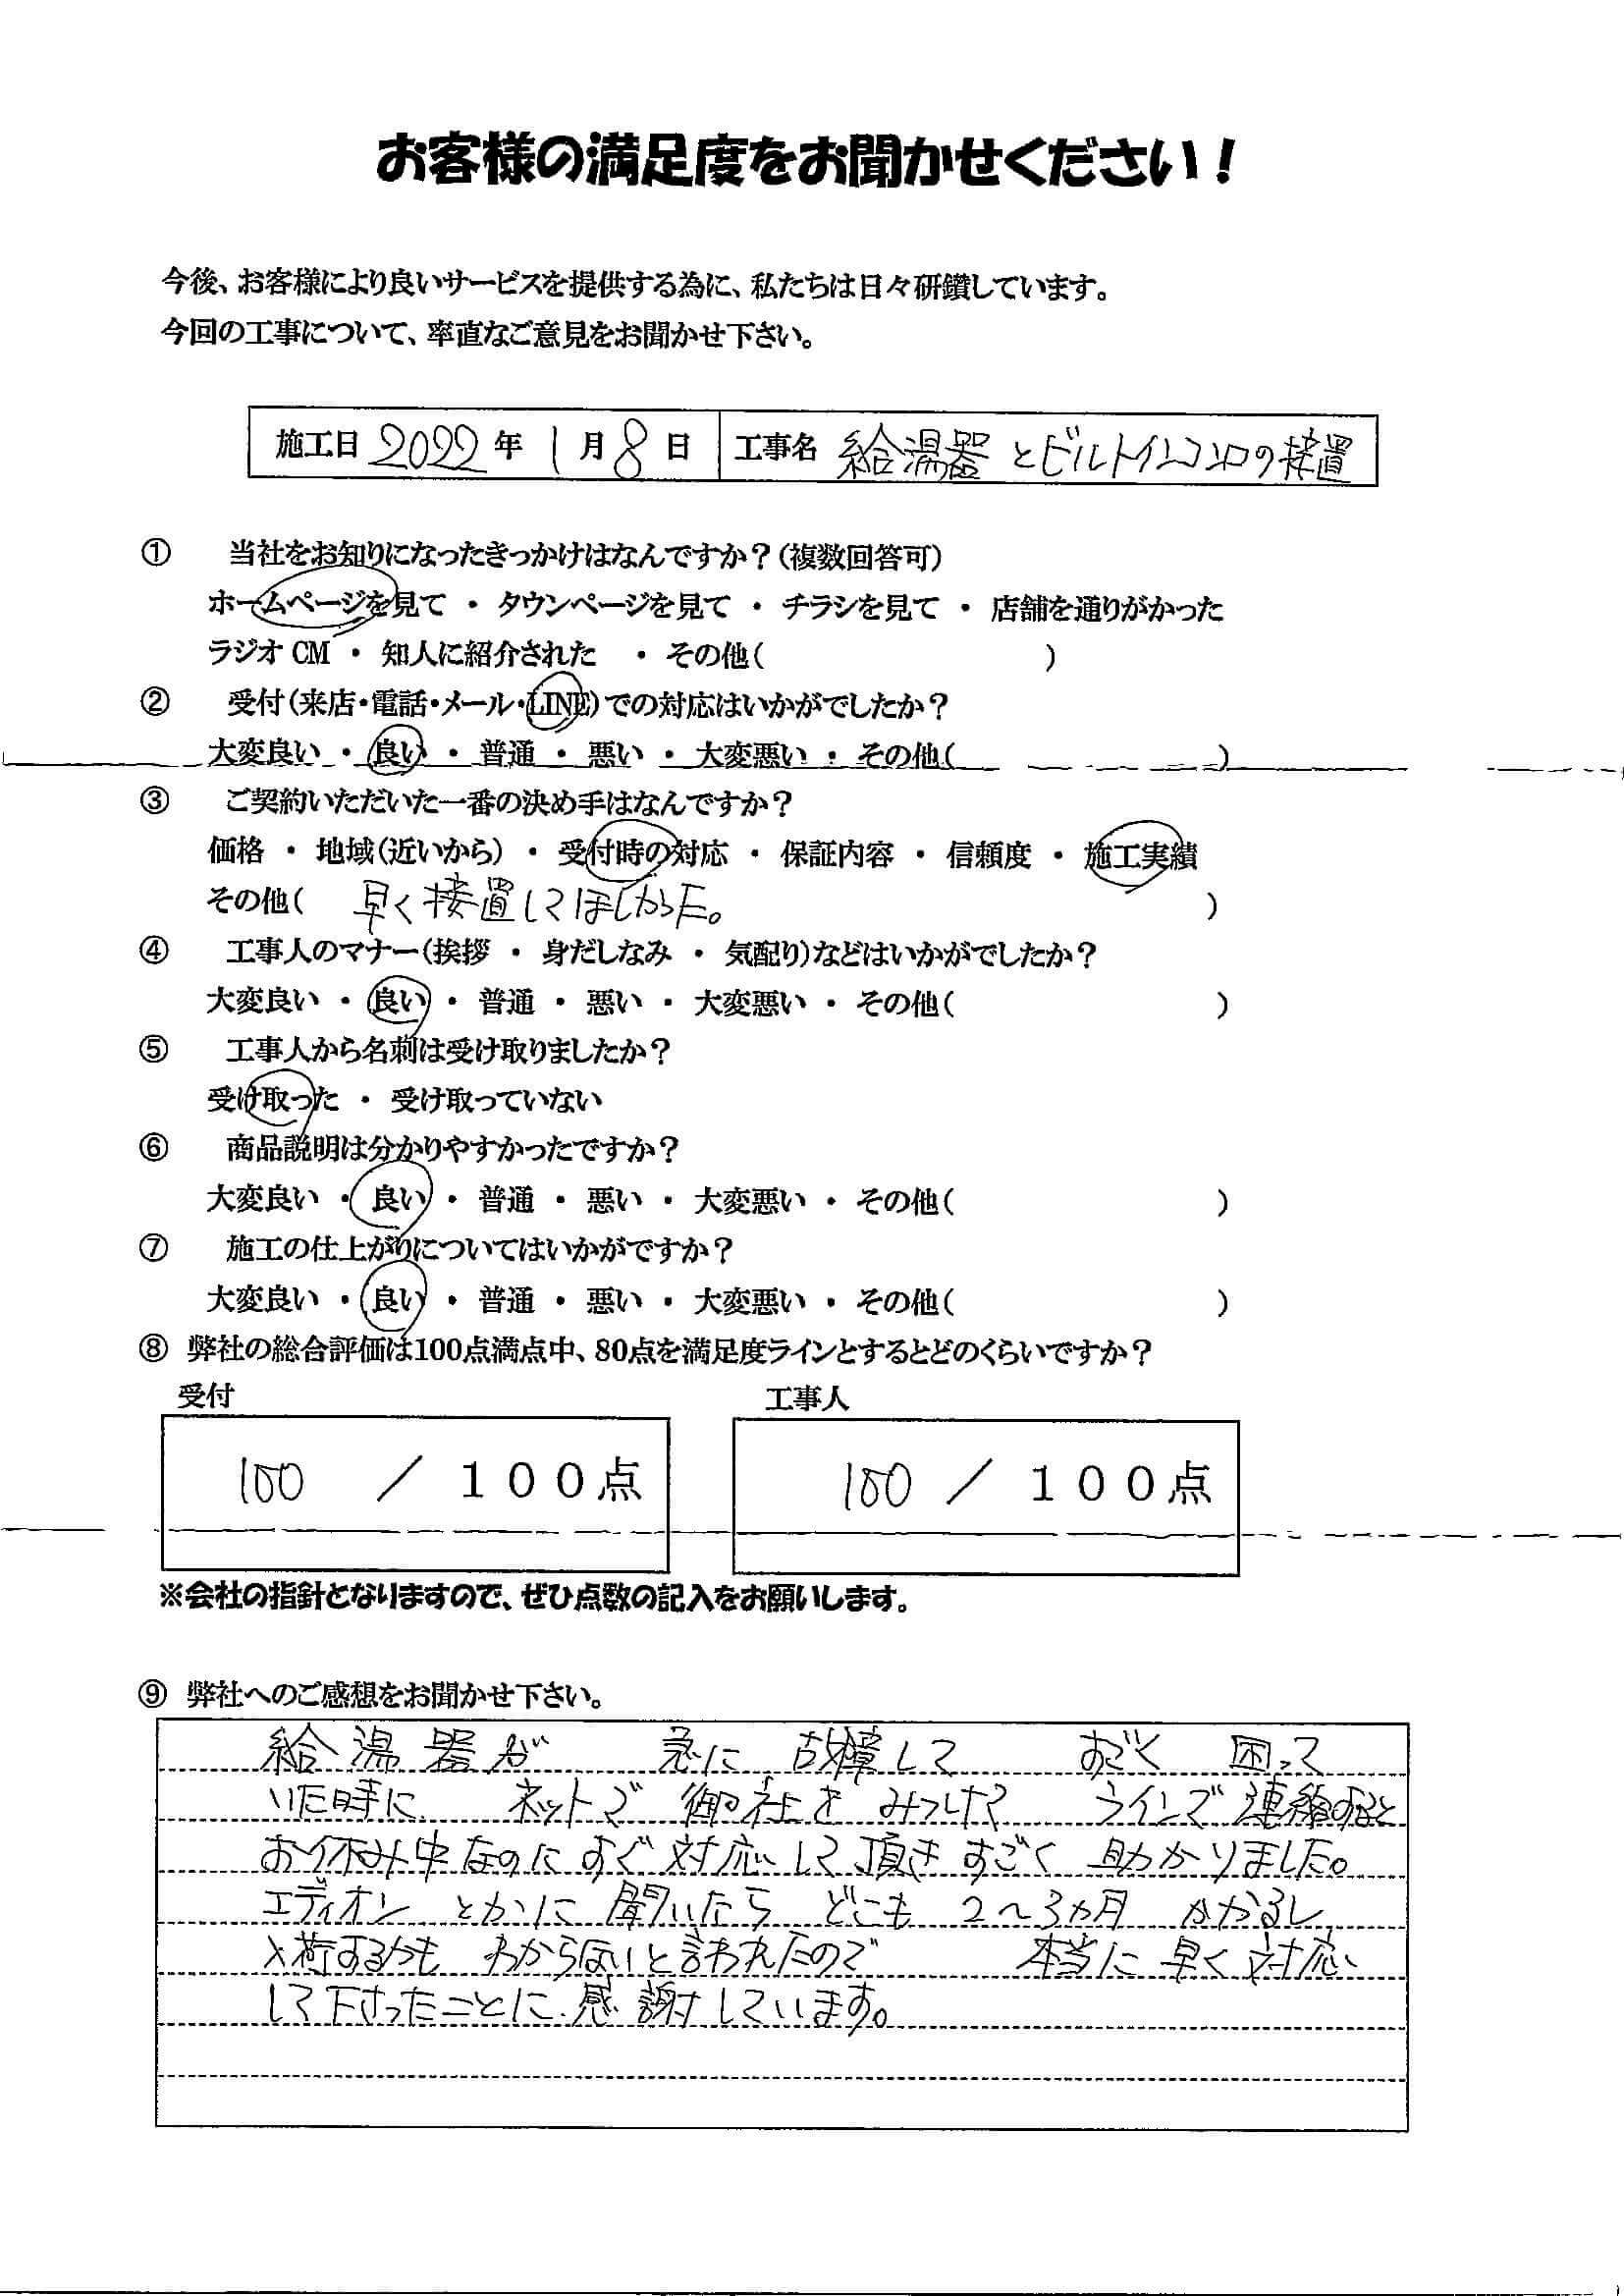 お客様の満足度をお聞かせください！
今後、お客様により良いサービスを提供する為に、私たちは日々研鑽しています。
今回の工事について、率直なご意見をお聞かせ下さい。
施工日 2022 年 1 月 8 日 工事名 給湯器とビルトインコンロの接置
① 当社をお知りになったきっかけはなんですか？(複数回答可)
ホームページを見て ・ タウンページを見て ・ チラシを見て ・ 店舗を通りがかった
ラジオ CM ・ 知人に紹介された ・ その他( )
② 受付(来店・電話・メール・LINE)での対応はいかがでしたか？
大変良い ・ 良い ・ 普通 ・ 悪い ・ 大変悪い ・ その他( )
③ ご契約いただいた一番の決め手はなんですか？
価格 ・ 地域(近いから) ・ 受付時の対応 ・ 保証内容 ・ 信頼度 ・ 施工実績
その他( 早く接置してほしかった。 )
④ 工事人のマナー(挨拶 ・ 身だしなみ ・ 気配り)などはいかがでしたか？
大変良い ・ 良い ・ 普通 ・ 悪い ・ 大変悪い ・ その他( )
⑤ 工事人から名刺は受け取りましたか？
受け取った ・ 受け取っていない
⑥ 商品説明は分かりやすかったですか？
大変良い ・ 良い ・ 普通 ・ 悪い ・ 大変悪い ・ その他( )
⑦ 施工の仕上がりについてはいかがですか？
大変良い ・ 良い ・ 普通 ・ 悪い ・ 大変悪い ・ その他( )
⑧ 弊社の総合評価は100点満点中、80点を満足度ラインとするとどのくらいですか？
受付 工事人
100 ／ 100点 100 ／ 100点
※会社の指針となりますので、ぜひ点数の記入をお願いします。
⑨ 弊社へのご感想をお聞かせ下さい。
給湯器が 急に 故障して すごく 困って
いた時に ネットで 御社を みつけて ラインで 連絡
お休み中なのに すぐ 対応して頂き すごく 助かりました。
エディオン とかに 聞いたら どこも 2〜3ヵ月 かかるし
入荷するかも わからないと言われたので 本当に 早く 対応
して下さったことに 感謝しています。